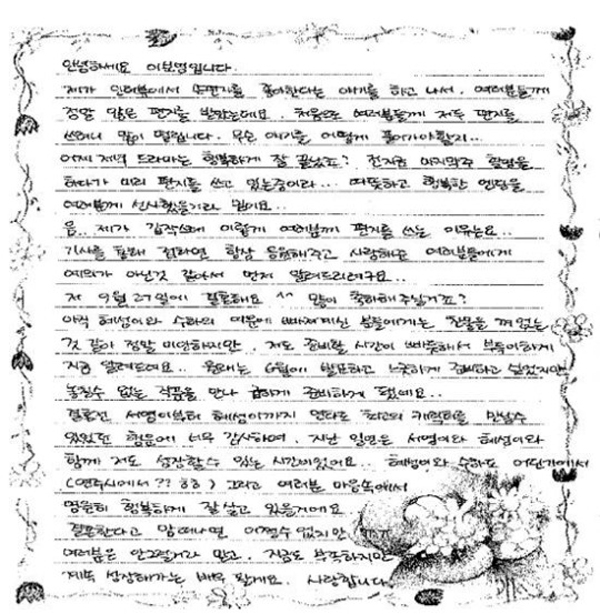 안녕하세요 이보영입니다.
제가 인터뷰에서 손편지를 좋아한다는 얘기를 하고 나서, 여러분들께
정말 많은 편지를 받았는데요. 처음으로 여러분들께 저도 편지를
쓰려니 많이 떨립니다. 무슨 얘기를 어떻게 풀어가야할지...
어제 저녁 드라마는 행복하게 잘 끝났죠? 전 지금 마지막주 촬영을
하다가 미리 편지를 쓰고 있는중이라... 따뜻하고 행복한 엔딩을
여러분께 선사했을거라 믿어요..
음.. 제가 갑작스레 이렇게 여러분께 편지를 쓰는 이유는요..
기사를 통해 전하면 항상 응원해주고 사랑해준 여러분들에게
예의가 아닌것 같아서 먼저 알려드리려구요..
저 9월 27일에 결혼해요 ^^ 많이 축하해주실거죠?
아직 혜성이와 수하의 여운에 빠져계신 분들에게는 찬물을 껴얹는
것 같아 정말 미안하지만, 저도 준비할 시간이 빠듯해서 부득이하게
지금 알려드려요.. 원래는 6월에 발표하고 느긋하게 준비하고 싶었지만
놓칠수 없는 작품을 만나 급하게 준비하게 됐네요..
결혼전 서영이부터 혜성이까지 연타로 최고의 캐릭터를 만날수
있었던 행운에 너무 감사하며, 지난 일년은 서영이와 혜성이와
함께 저도 성장할수 있는 시간이었어요.. 혜성이와 수하도 어딘가에서
(연주시에서?? ㅎㅎ) 그리고 여러분 마음속에서
영원히 행복하게 잘 살고 있을거에요
결혼한다고 맘떠나면 어쩔수 없지만
여러분은 안그럴거라 믿고, 지금도 부족하지만
계속 성장해가는 배우 될게요. 사랑합니다